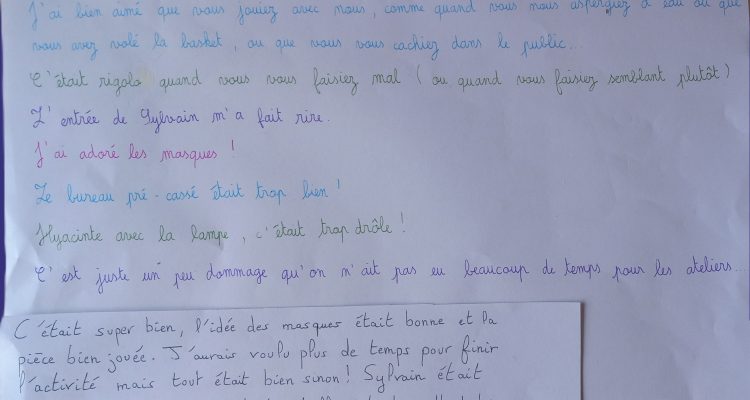 J'ai bien aimé que vous jouiez avec nous, comme quand vous nous aspergiez d'eau ou que
vous avez volé la basket, ou que vous vous cachiez dans le public...
C'était rigolo quand vous vous faisiez mal (ou quand vous faisiez semblant plutôt)
L'entrée de Sylvain m'a fait rire.
J'ai adoré les masques !
Le bureau pré-cassé était trop bien !
Hyacinte avec la lampe, c'était trop drôle !
C'est juste un peu dommage qu'on n'ait pas eu beaucoup de temps pour les ateliers...
C'était super bien, l'idée des masques était bonne et la
pièce bien jouée. J'aurais voulu plus de temps pour finir
l'activité mais tout était bien sinon ! Sylvain était